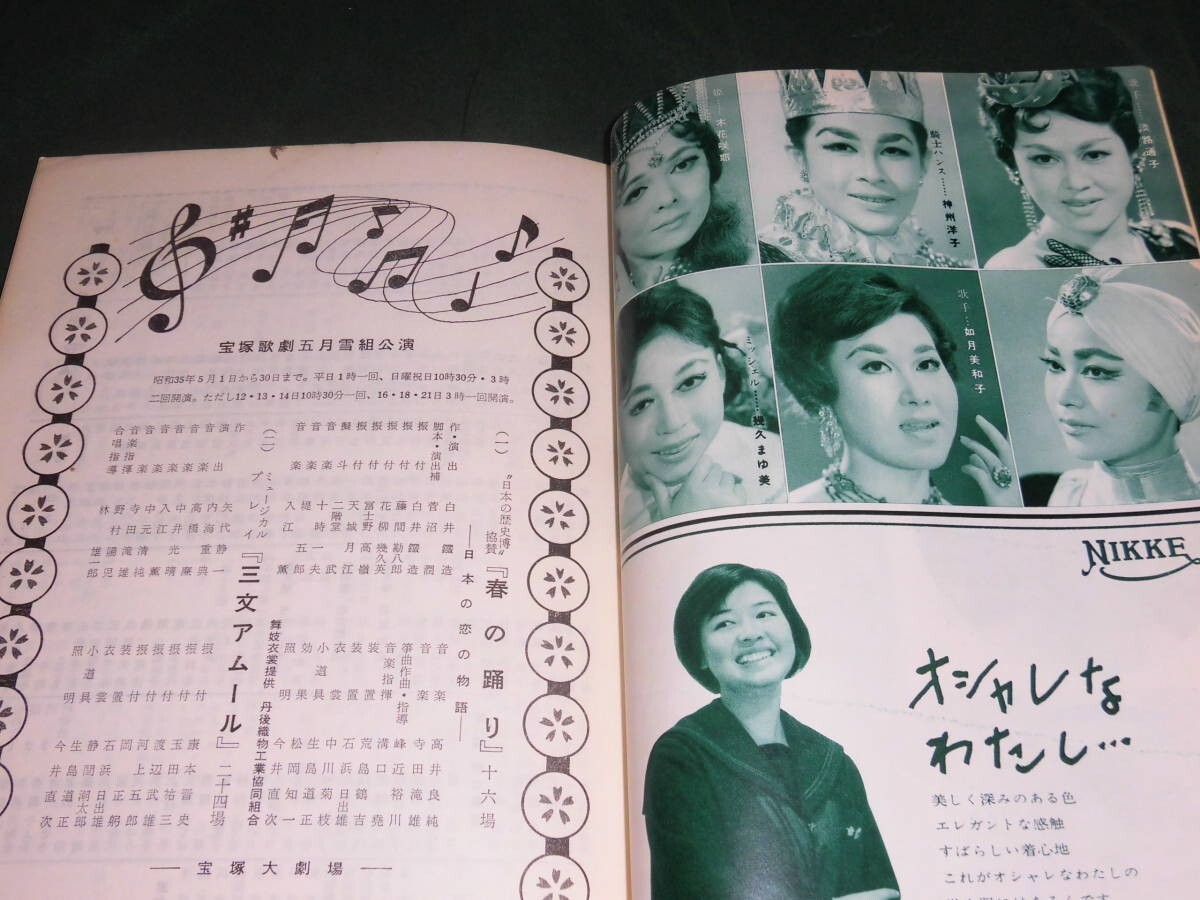 宝塚歌劇五月雪組公演
昭和35年5月1日から30日まで。平日1時一回、日曜祝日10時30分・3時
二回開演。ただし12・13・14日10時30分一回、16・18・21日3時一回開演。
(一)
"日本の歴史博"協賛
『春の踊り』十六場
―日本の恋の物語―
作・演出 白井鐵造
脚本・演出補 菅沼潤
振付 白井鐵造
振付 藤間勘八郎
振付 花柳幾久英
振付 冨士野高嶺
振付 天城月江
擬斗 二階堂武
音楽 十時一夫
音楽 堤五郎
音楽 入江薫
音楽 高井良純
音楽 寺田滝雄
箏曲作曲・指導 峰近裕川
音楽指揮 溝口堯
装置 荒島鶴吉
装置 石浜日出雄
衣裳 中川菊枝
小道具 生島道正
効果 松岡知一
照明 今井直次
舞妓衣裳提供 丹後織物工業協同組合
(二)
ミュージカル
プレイ
『三文アムール』二十四場
作 矢代静一
演出 内海重典
音楽 高橋廉
音楽 中井光晴
音楽 入江薫
音楽 中元清純
音楽 寺田滝雄
音楽指揮 野村陽児
合唱指導 林雄一郎
振付 康本晋史
振付 玉田祐三
振付 渡辺武雄
振付 河上五郎
装置 石浜日出雄
小道具 生島道正
照明 今井直次
―宝塚大劇場―
姫……木花咲耶
騎士ハンス……神州洋子
歌手……淡路通子
ミッシェル……幾久まゆ美
歌手…如月美和子
NIKKE
オシャレな
わたし…
美しく深みのある色
エレガントな感触
すばらしい着心地
これがオシャレなわたしの